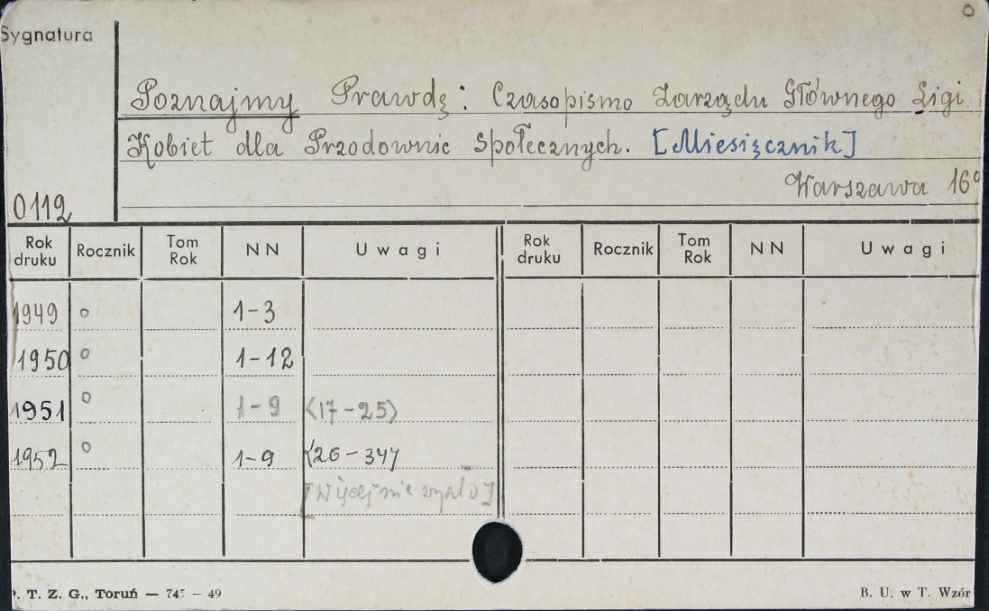 Sygnatura
Poznajmy Prawdę: Czasopismo Zarządu Głównego Ligi
Kobiet dla Przodownic Społecznych. [Miesięcznik]
Warszawa 16°
0112
Rok druku Rocznik Tom Rok NN Uwagi Rok druku Rocznik Tom Rok NN Uwagi
1949 o 1-3
1950 o 1-12
1951 o 1-9 <17-25>
1952 o 1-9 <26-34>
[Więcej nie wyszło]
. T. Z. G., Toruń — 745 — 49 B. U. w T. Wzór